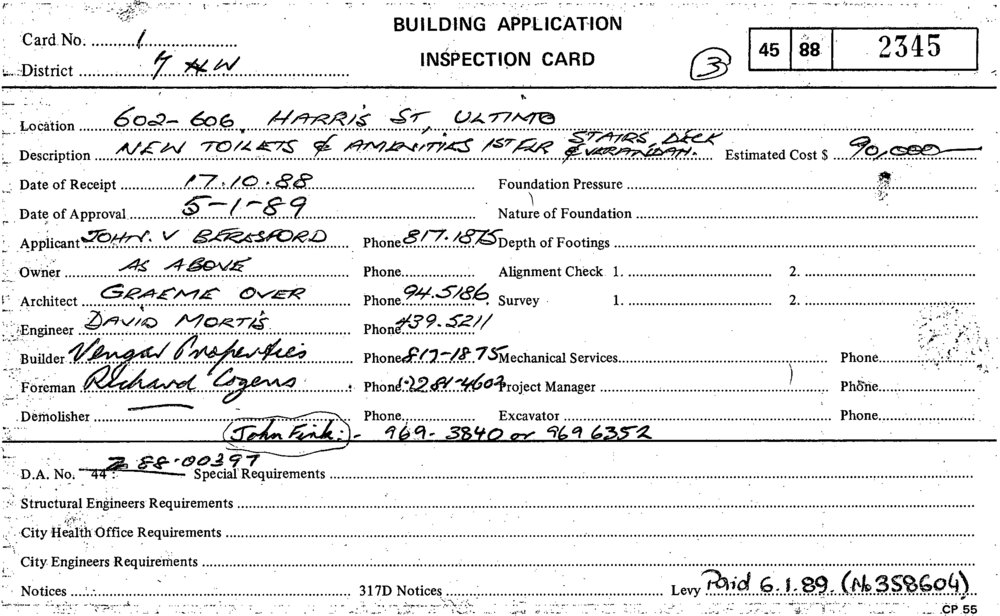 BUILDING APPLICATION
Card No. 1
INSPECTION CARD
3
45 88 2345
District 7 HW
Location 602-606, HARRIS ST, ULTIMO
Description NEW TOILETS & AMENITIES 1ST FLR STAIRS, DECK & VERANDAH. Estimated Cost $ 90,000
Date of Receipt 17.10.88 Foundation Pressure
Date of Approval 5-1-89 Nature of Foundation
Applicant JOHN. V BERESFORD Phone 817.1875 Depth of Footings
Owner AS ABOVE Phone Alignment Check 1. 2.
Architect GRAEME OVER Phone 94.5186 Survey 1. 2.
Engineer DAVID MORTIS Phone 439.5211
Builder Vengar Properties Phone 817-1875 Mechanical Services Phone
Foreman Richard Cozens Phone 2281-4607 Project Manager Phone
Demolisher Phone Excavator Phone
John Fink:- 969-3840 or 969 6352
D.A. No. 44 Z 88-00397 Special Requirements
Structural Engineers Requirements
City Health Office Requirements
City Engineers Requirements
Notices 317D Notices Levy Paid 6.1.89. (No 358604)
CP 55